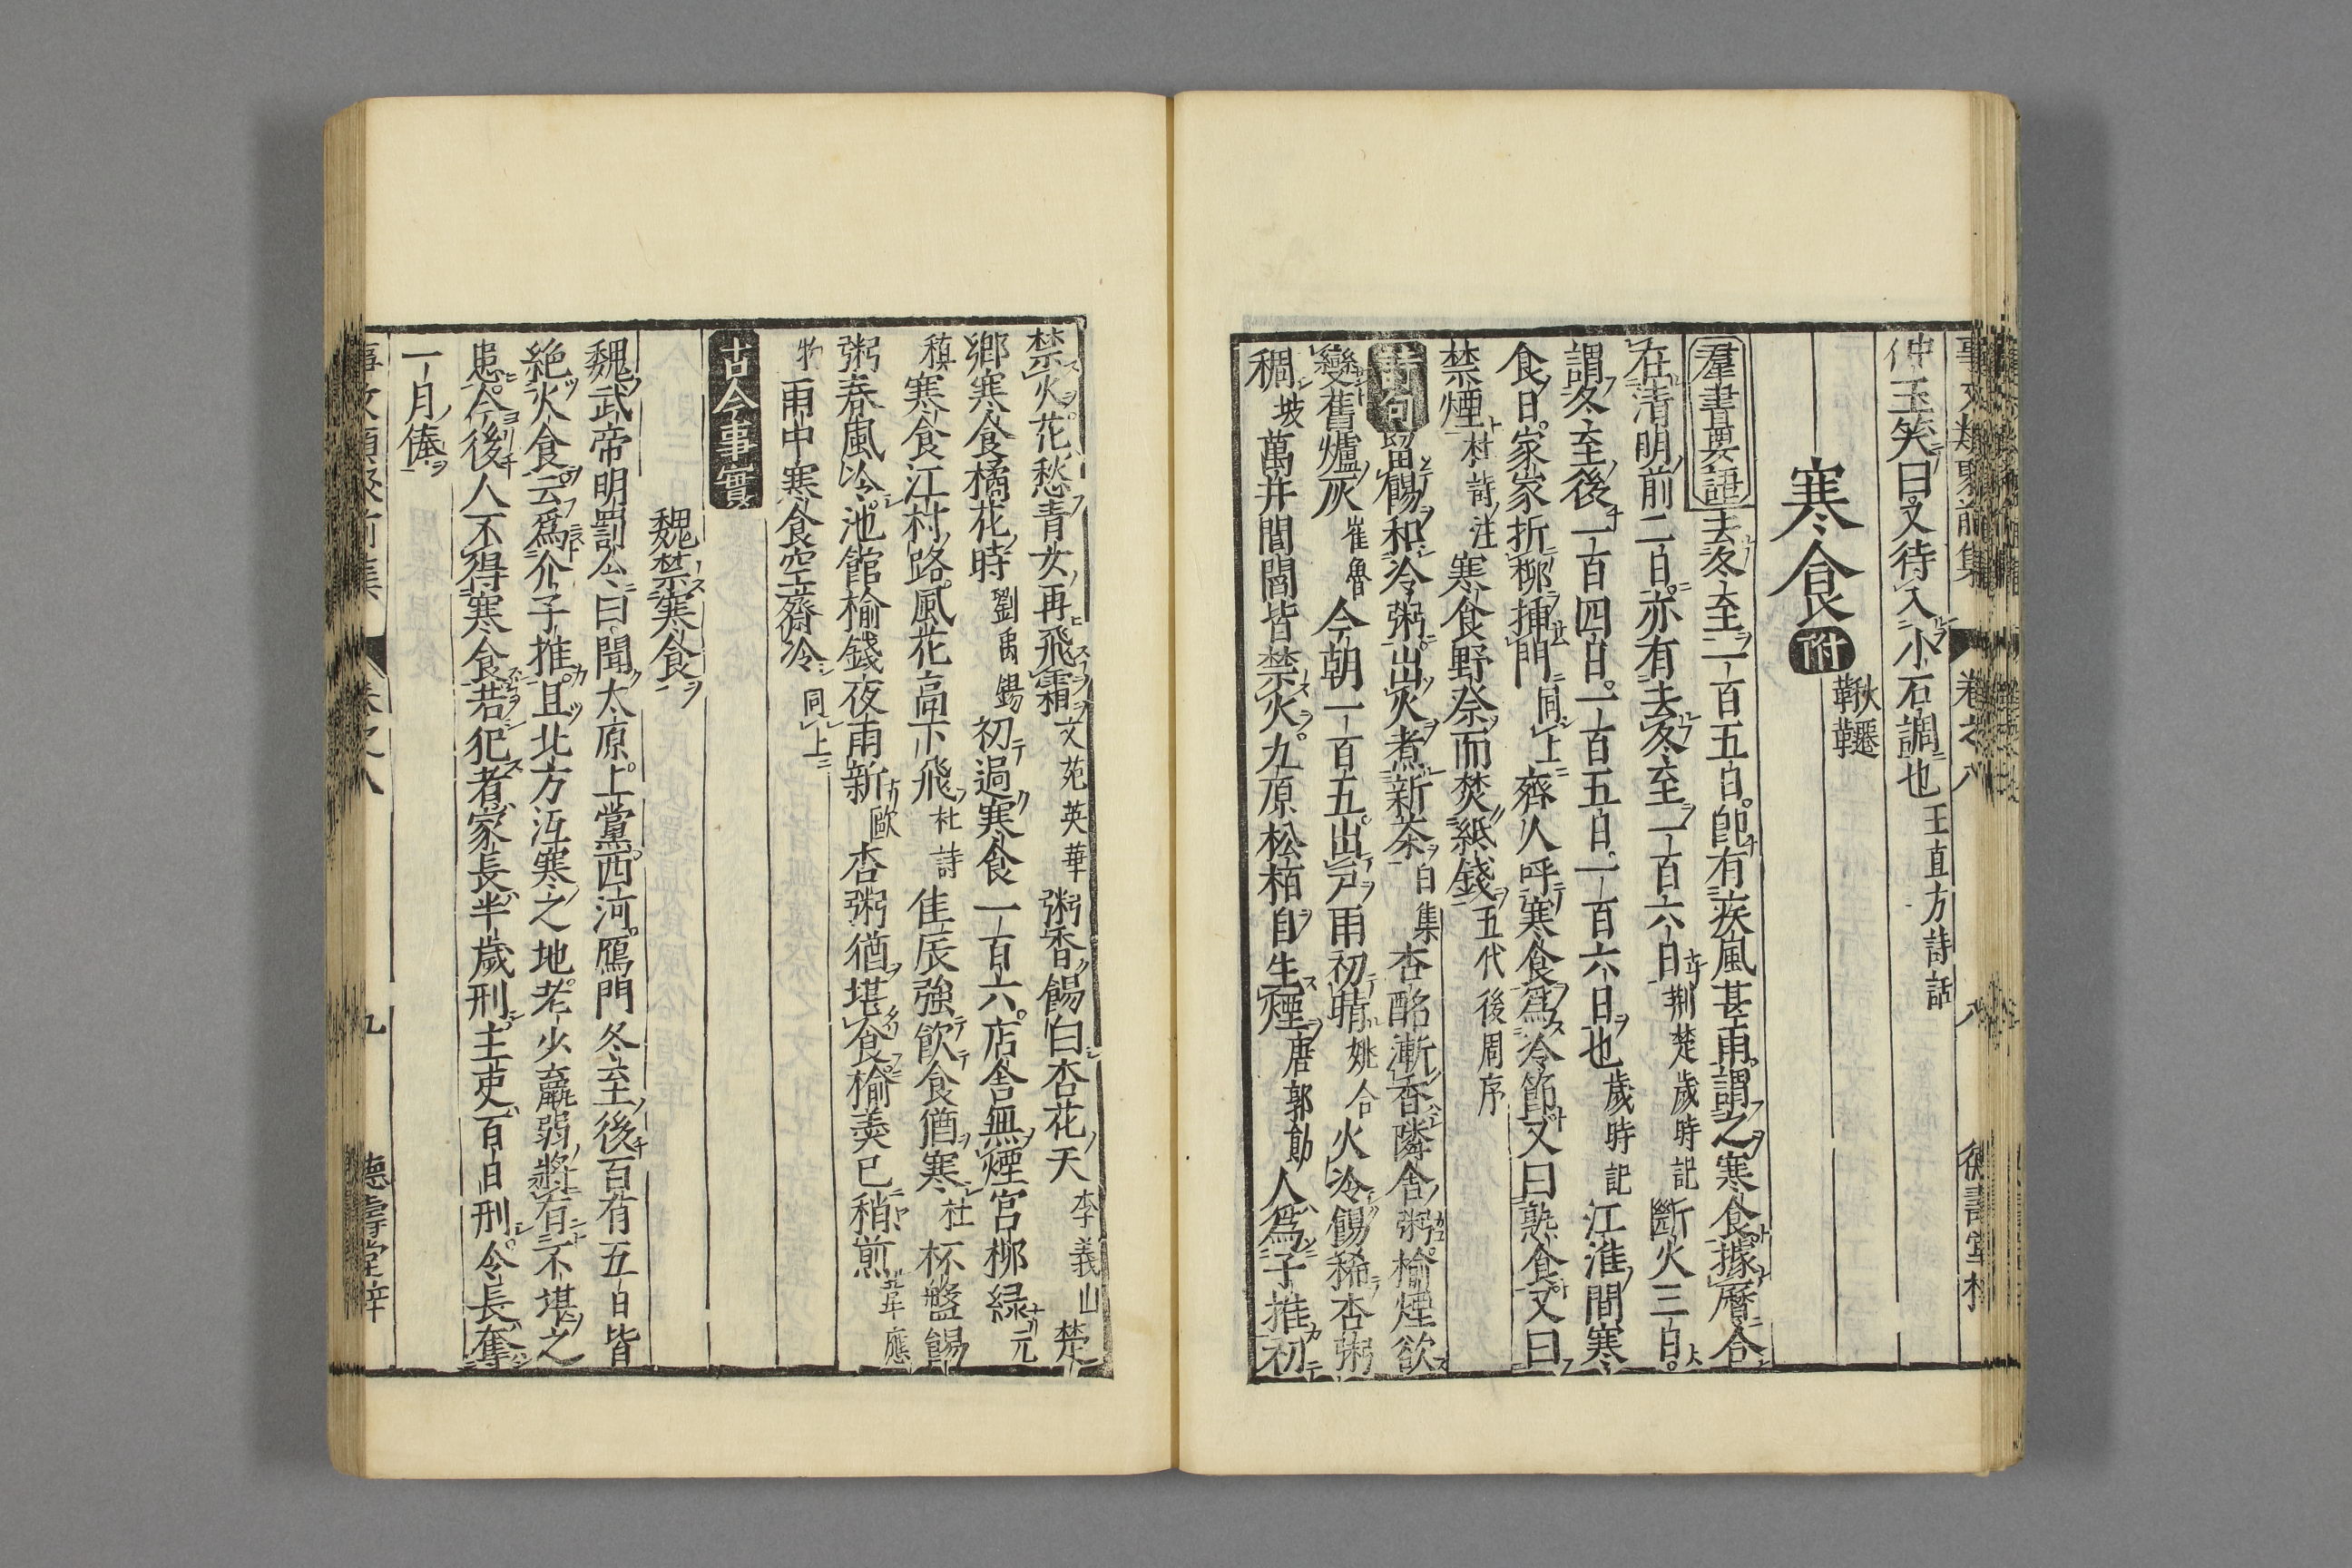 事文類聚前集 卷之八 八 德壽堂梓
仲玉笑曰又待入小石調也王直方詩話
寒食附鞦韆
羣書要語去冬至一百五日卽有疾風甚雨謂之寒食據曆合
在清明前二日亦有去冬至一百六日荆楚歲時記斷火三日
謂冬至後一百四日一百五日一百六日也歲時記江淮間寒
食日家家折柳挿門同上齊人呼寒食爲冷節又曰熟食又曰
禁煙杜詩注寒食野祭而焚紙錢五代後周序
詩句留餳和冷粥出火煮新茶白集杏酪漸香隣舍粥榆煙欲
變舊爐灰崔魯今朝一百五出戸雨初晴姚合火冷餳稀杏粥
稠坡萬井閭閻皆禁火九原松栢自生煙唐郭勛人爲子推初
禁火花愁青女再飛霜文苑英華粥香餳白杏花天李義山楚
鄉寒食橘花時劉禹錫初過寒食一百六店舍無煙宮柳綠元
稹寒食江村路風花高下飛杜詩佳辰強飲食猶寒杜杯盤餳
粥春風冷池館榆錢夜雨新歐杏粥猶堪食榆羹已稍煎韋應
物雨中寒食空齋冷同上
古今事實
魏禁寒食
魏武帝明罰令曰聞太原上黨西河鴈門冬至後百有五日皆
絶火食云爲介子推且北方沍寒之地老少羸弱將有不堪之
患今後人不得寒食若犯者家長半歲刑主吏百日刑令長奪
一月俸
事文類聚前集 卷之八 九 德壽堂梓